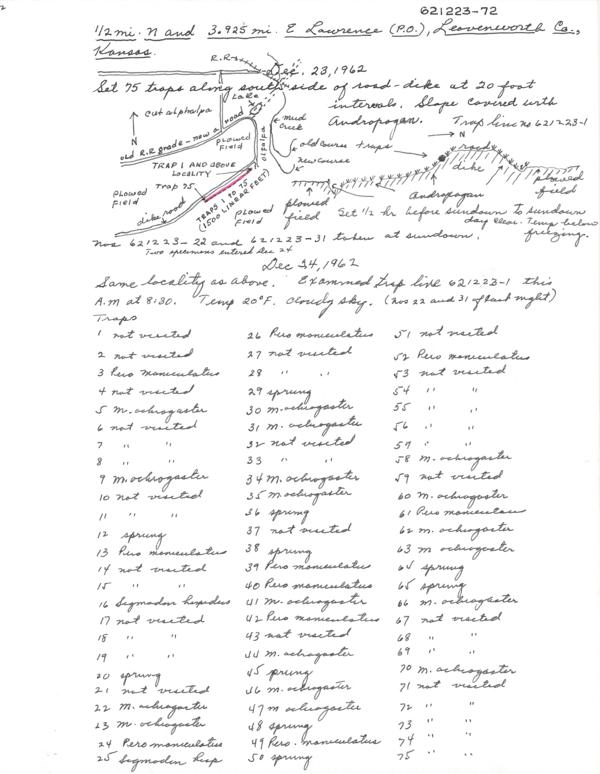 621223-72
1/2 mi. N and 3.925 mi. E Lawrence (P.O.), Leavenworth Co.,
Kansas.
R.R.
Dec. 23, 1962
Set 75 traps along south side of road-dike at 20 foot
intervals. Slope covered with
Andropogon. Trap line no 621223-1
Lake
cut alphalpa
N
old R.R grade - now a road
Plowed
Field
mud
crick
old ourse traps
new course
alfalfa
TRAP 1 AND ABOVE
LOCALITY
Trap 75
Plowed
Field
dike road
TRAPS 1 TO 75
(1500 LINEAR FEET)
Plowed
Field
N
road
dike
plowed
field
Andropogon
plowed
field
Set 1/2 hr before sundown to sundown
day clear. Temp below
freezing.
Nos 621223-22 and 621223-31 taken at sundown.
Two specimens entered Dec 24
Dec 24, 1962
Same locality as above. Examined trap line 621223-1 this
A.M at 8:30. Temp 20°F. cloudy sky. (nos 22 and 31 of last night)
Traps
1 not visited
2 not visited
3 Pero maniculatus
4 not visited
5 M. ochrogaster
6 not visited
7 " "
8 " "
9 M. ochrogaster
10 not visited
11 " "
12 sprung
13 Pero maniculatus
14 not visited
15 " "
16 Sigmodon hispidus
17 not visited
18 " "
19 " "
20 sprung
21 not visited
22 M. ochrogaster
23 M. ochrogaster
24 Pero maniculatus
25 Sigmodon hisp
26 Pero maniculatus
27 not visited
28 " "
29 sprung
30 M. ochrogaster
31 M. ochrogaster
32 not visited
33 " "
34 M. ochrogaster
35 M. ochrogaster
36 sprung
37 not visited
38 sprung
39 Pero maniculatus
40 Pero maniculatus
41 M. ochrogaster
42 Pero maniculatus
43 not visited
44 M. ochrogaster
45 sprung
46 M. ochrogaster
47 M ochrogaster
48 sprung
49 Pero. maniculatus
50 sprung
51 not visited
52 Pero maniculatus
53 not visited
54 " "
55 " "
56 " "
57 " "
58 M. ochrogaster
59 not visited
60 M. ochrogaster
61 Pero maniculatus
62 M. ochrogaster
63 M ochrogaster
64 sprung
65 sprung
66 M. ochrogaster
67 not visited
68 " "
69 " "
70 M. ochrogaster
71 not visited
72 " "
73 " "
74 " "
75 " "